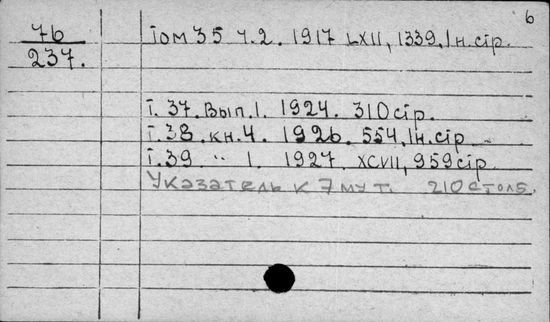 6
76
237.
Том 35 ч.2. 1917 LXII, 1339, 1 н.стр.
т. 37. Вып. 1. 1924. 310 стр.
т. 38. кн. 4. 1926. 554, 1 н. стр
т. 39 " 1. 1927. XCVII, 959 стр
Указатель к 7 му т. 210 столб.